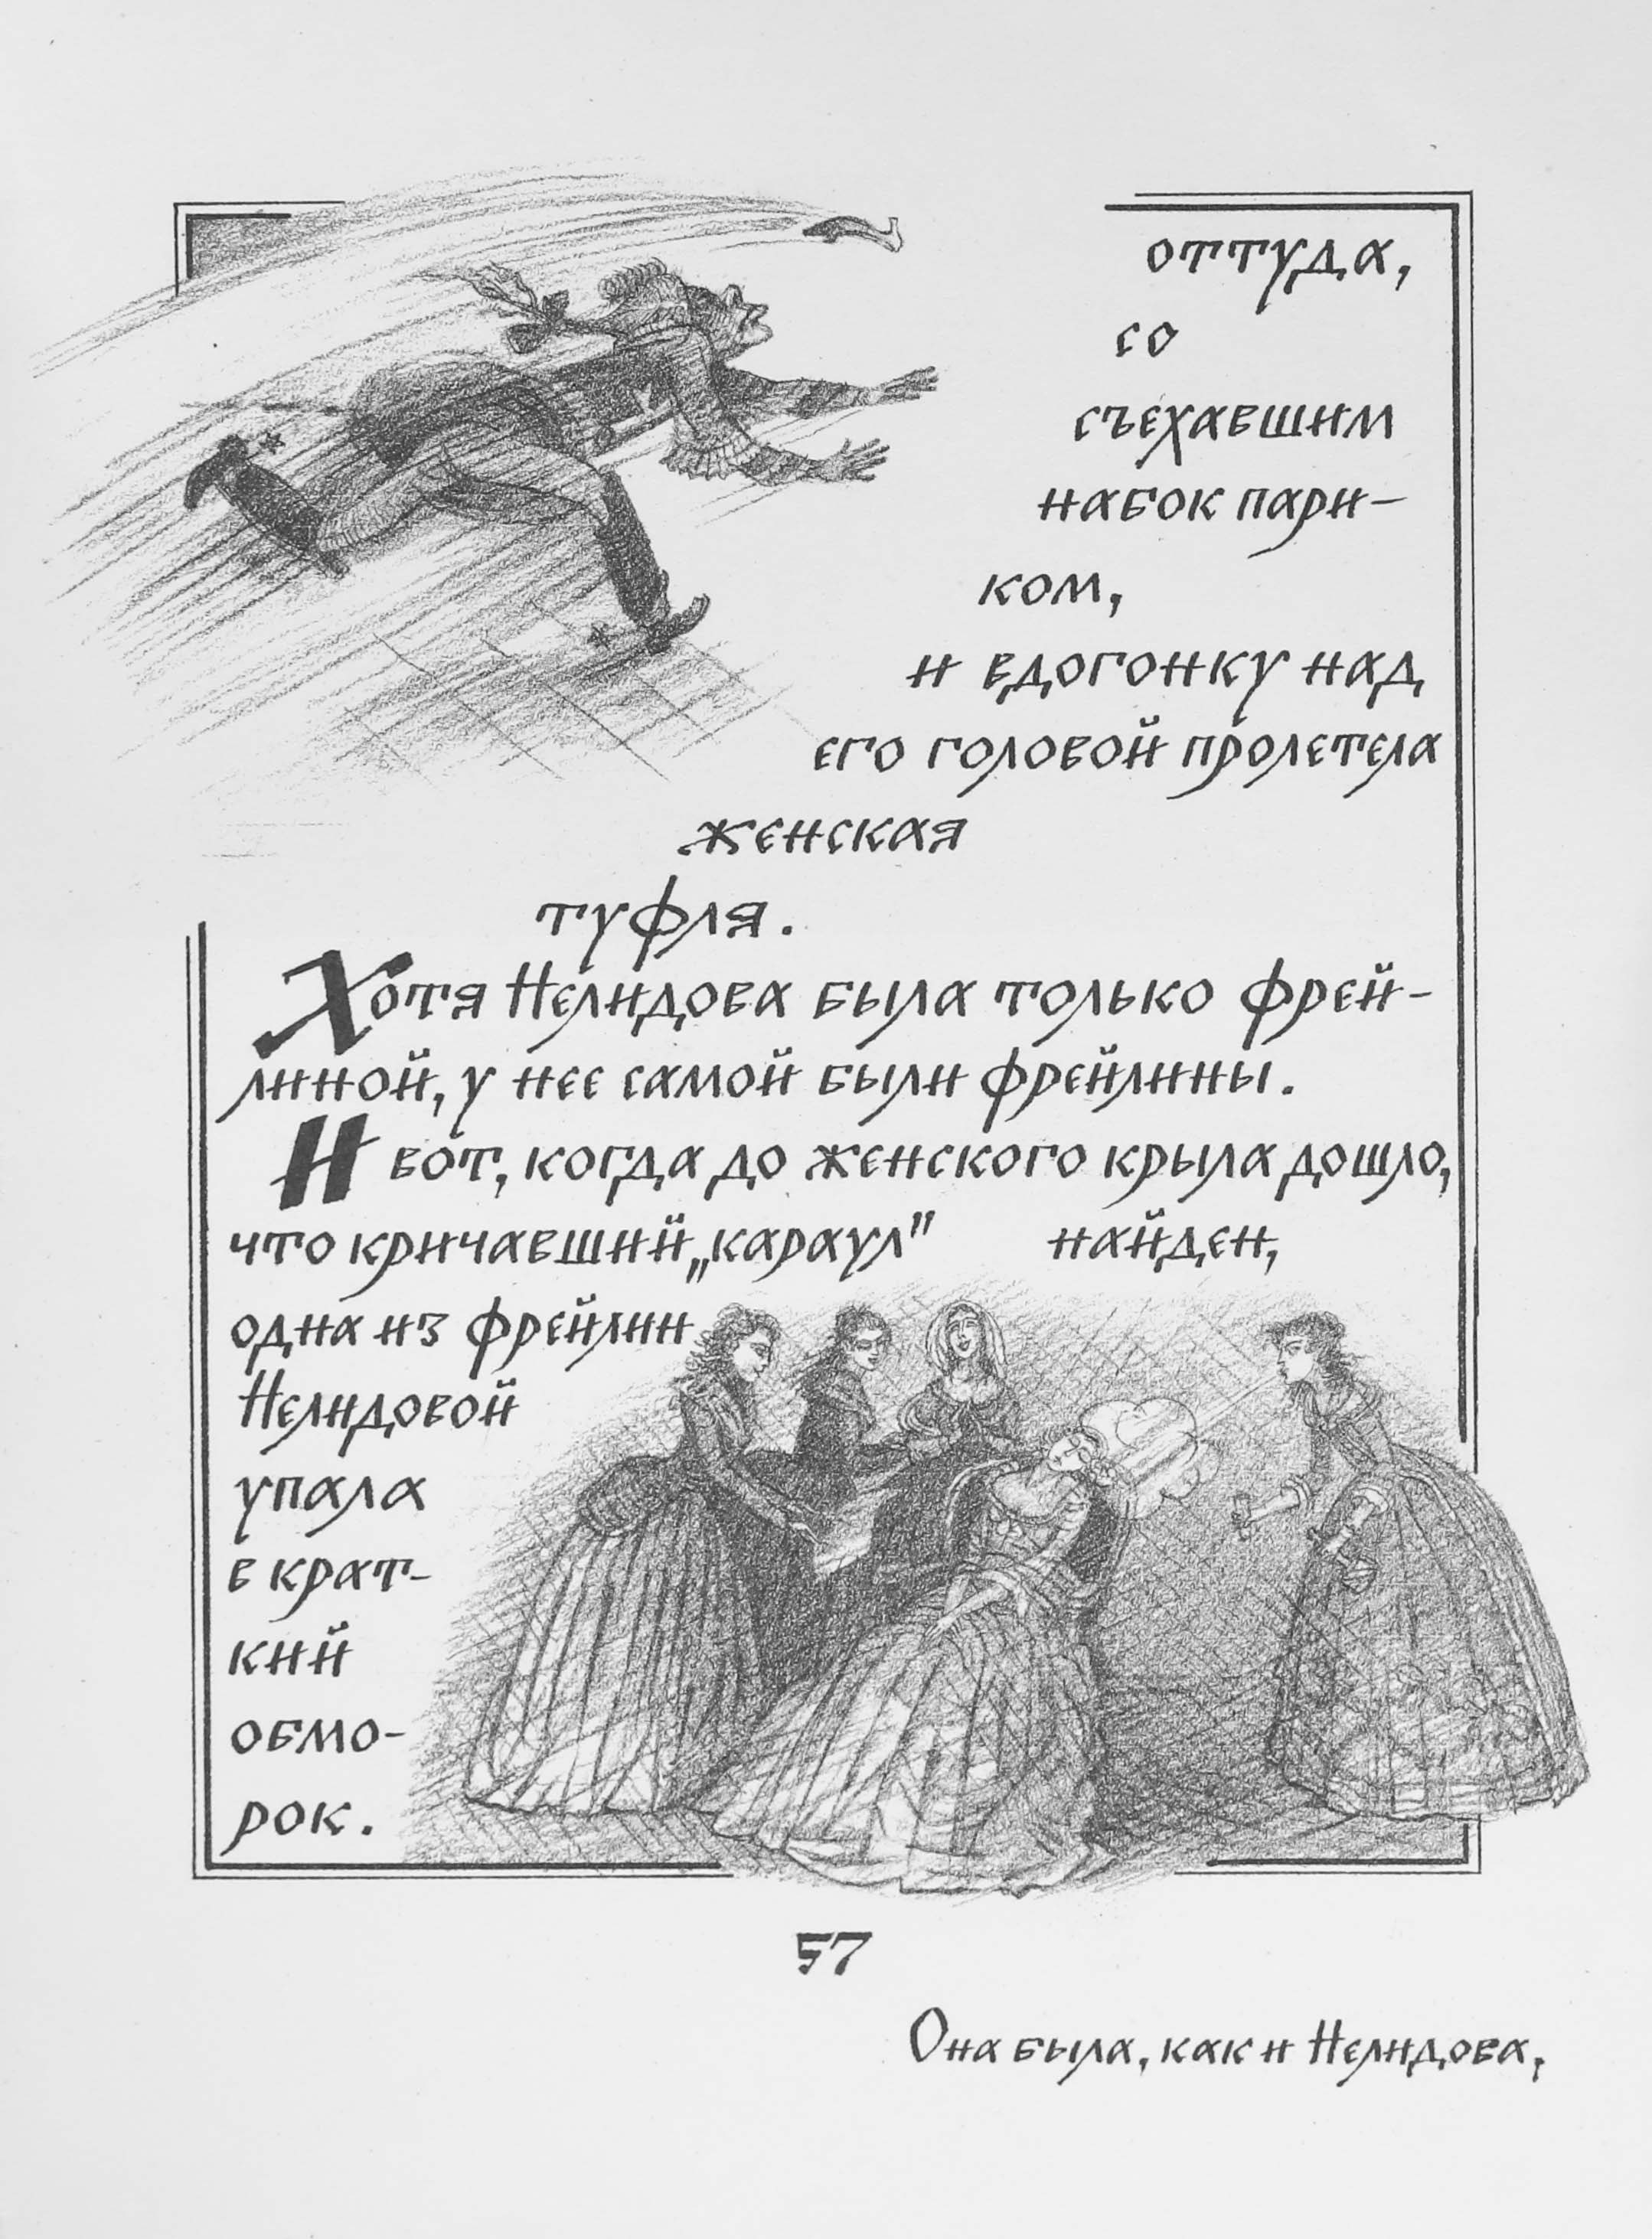 оттуда,
со
съехавшим
набок пари-
ком,
и вдогонку над
его головой пролетела
женская
туфля.
Хотя Нелидова была только фрей-
линой, у нее самой были фрейлины.
И вот, когда до женского крыла дошло,
что кричавший „караул" найден,
одна из фрейлин
Нелидовой
упала
в крат-
кий
обмо-
рок.
57
Она была, как и Нелидова,